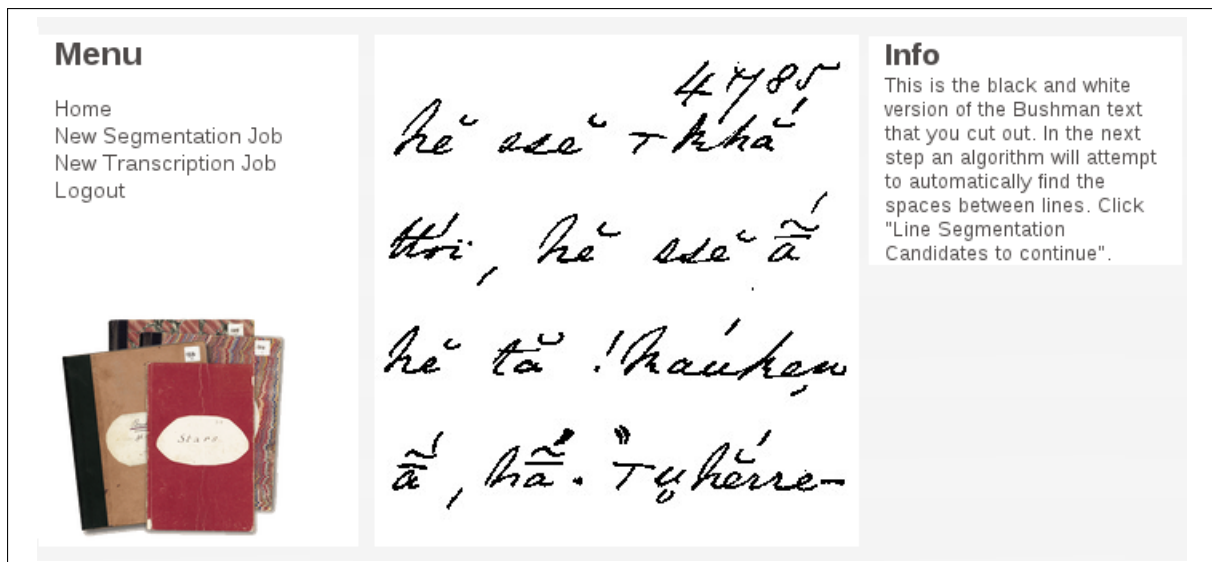 Menu
Home
New Segmentation Job
New Transcription Job
Logout
Stars.
4785
hĕ ssĕ
hĕ ssĕ
hĕ tă
Info
This is the black and white
version of the Bushman text
that you cut out. In the next
step an algorithm will attempt
to automatically find the
spaces between lines. Click
"Line Segmentation
Candidates to continue".